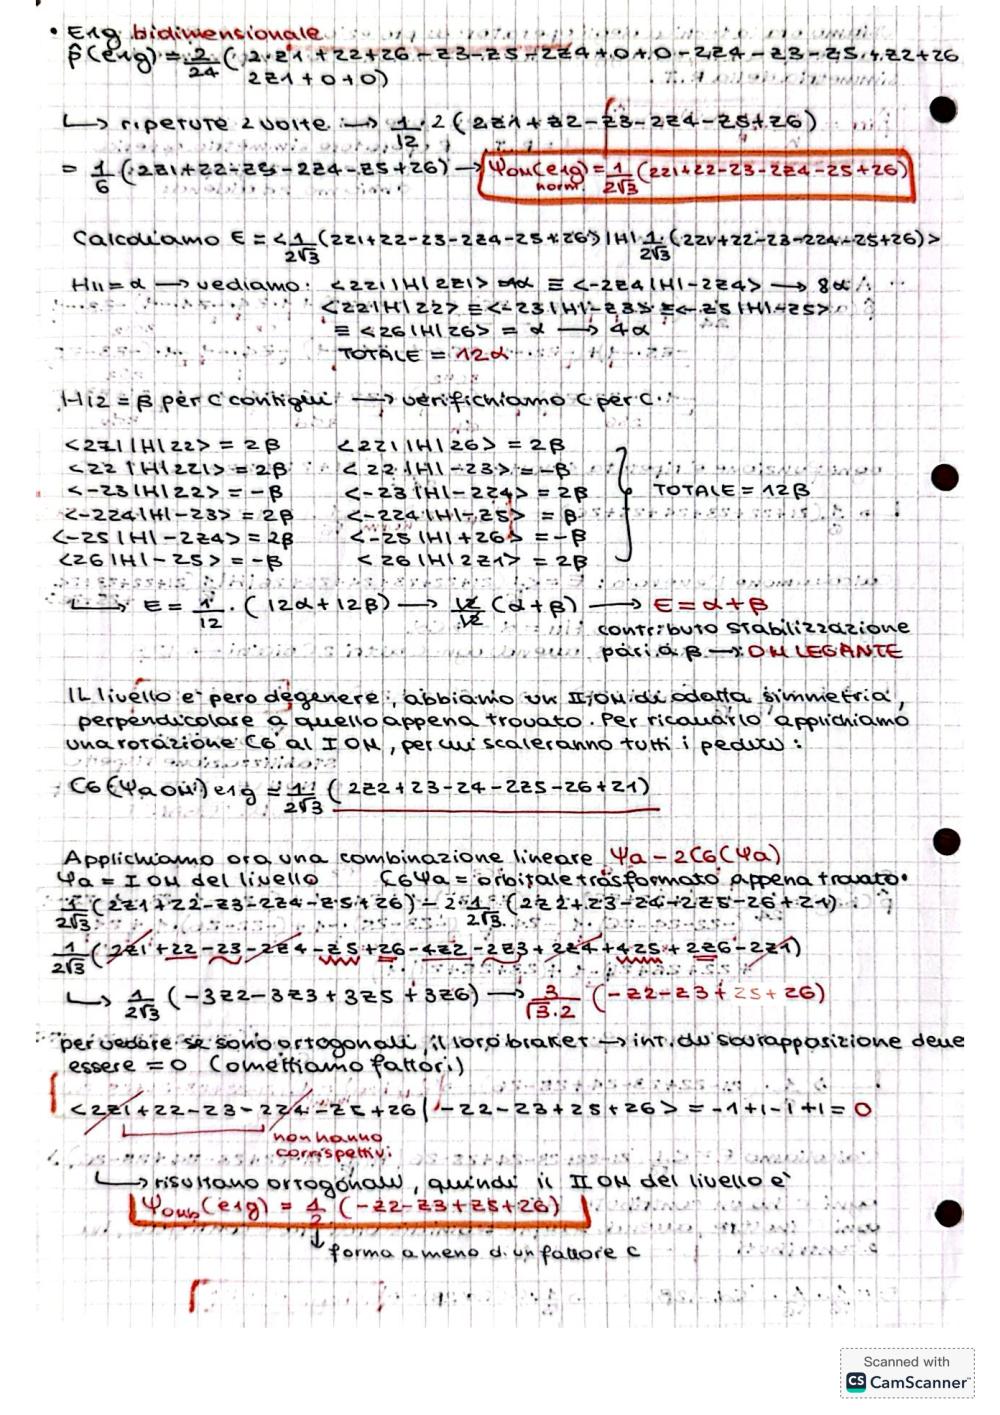 • E1g bidimensionale
P̂(e1g) = 2/24 (2·z1 + z2+z6 - z3 - z5 - 2z4 + 0 + 0 - 2z4 - z3 - z5 + z2+z6
2z1 + 0 + 0)
↳ ripetute 2 volte → 1/12 · 2 (2z1 + z2 - z3 - 2z4 - z5 + z6)
= 1/6 (2z1+z2-z3-2z4-z5+z6) → ΨOM(e1g) = 1/2√3 (2z1+z2-z3-2z4-z5+z6)
norm.
Calcoliamo E = <1/2√3 (2z1+z2-z3-2z4-z5+z6) |H| 1/2√3 (2z1+z2-z3-2z4-z5+z6)>
H11 = α → vediamo: <2z1|H|2z1> = 4α ≡ <-2z4|H|-2z4> → 8α
<z2|H|z2> ≡ <-z3|H|-z3> ≡ <-z5|H|-z5>
≡ <z6|H|z6> = α → 4α
TOTALE = 12α
H12 = β per C contigui → verifichiamo C per C.
<2z1|H|z2> = 2β <2z1|H|z6> = 2β
<z2|H|2z1> = 2β <z2|H|-z3> = -β
<-z3|H|z2> = -β <-z3|H|-2z4> = 2β TOTALE = 12β
<-2z4|H|-z3> = 2β <-2z4|H|-z5> = β
<-z5|H|-2z4> = 2β <-z5|H|+z6> = -β
<z6|H|-z5> = -β <z6|H|2z1> = 2β
↳ E = 1/12 · (12α + 12β) → 12/12 (α+β) → E = α + β
contributo stabilizzazione
pari a β → OM LEGANTE
IL livello e' pero degenere, abbiamo un II OM di adatta simmetria,
perpendicolare a quello appena trovato. Per ricavarlo applichiamo
una rotazione C6 al I OM, per cui scaleranno tutti i pedici:
C6 (Ψa OM) e1g = 1/2√3 (2z2+z3-z4-2z5-z6+z1)
Applichiamo ora una combinazione lineare Ψa - 2C6(Ψa)
Ψa = I OM del livello C6Ψa = orbitale trasformato appena trovato.
1/2√3 (2z1+z2-z3-2z4-z5+z6) - 2·1/2√3 (2z2+z3-z4-2z5-z6+z1)
1/2√3 (2z1 + z2 - z3 - 2z4 - z5 + z6 - 4z2 - 2z3 + 2z4 + 4z5 + 2z6 - 2z1)
↳ 1/2√3 (-3z2-3z3+3z5+3z6) → 3/√3·2 (-z2-z3+z5+z6)
per vedere se sono ortogonali, il loro braket → int. di sovrapposizione deve
essere = 0 (omettiamo fattori)
<2z1+z2-z3-2z4-z5+z6|-z2-z3+z5+z6> = -1+1-1+1 = 0
non hanno
corrispettivi
↳ risultano ortogonali, quindi il II OM del livello e'
ΨOMb(e1g) = 1/2 (-z2-z3+z5+z6)
↓ forma a meno di un fattore c
Scanned with
CS CamScanner